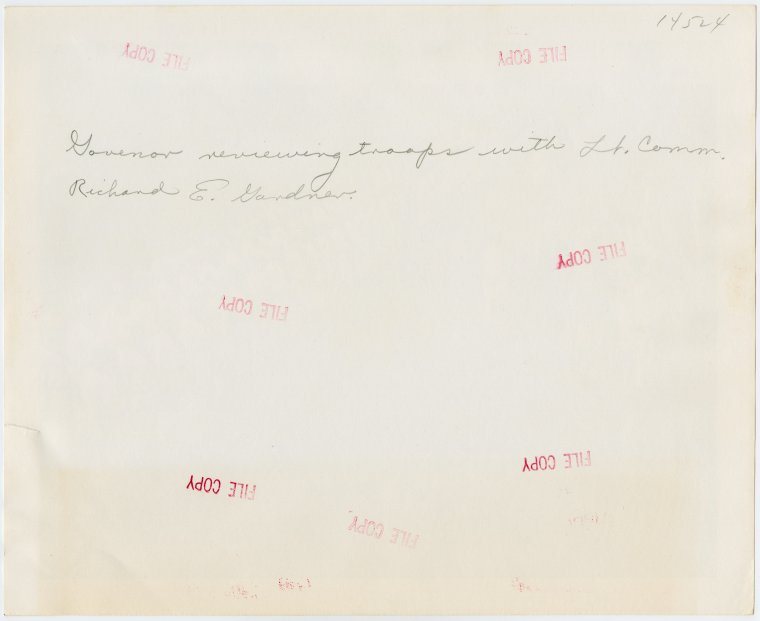 14524
FILE COPY
FILE COPY
Govenor reviewing troops with Lt. Comm.
Richard E. Gardner.
FILE COPY
FILE COPY
FILE COPY
FILE COPY
FILE COPY